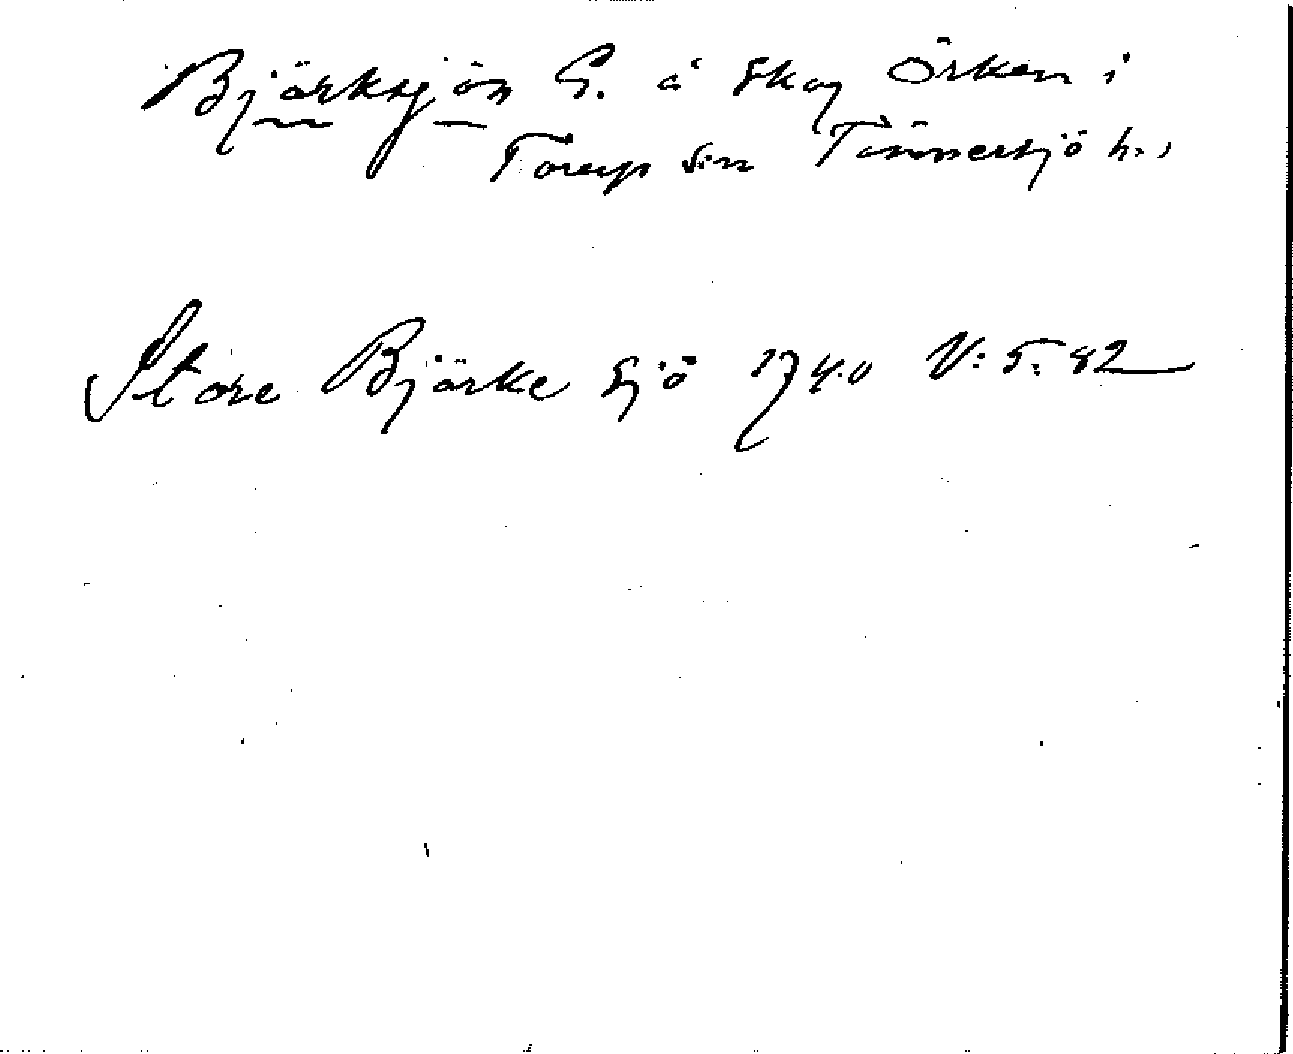 Björksjön G. å skog Örken i
Torup sn Tönnersjö h.,
Store Björke sjö 1740 V: 5: 82